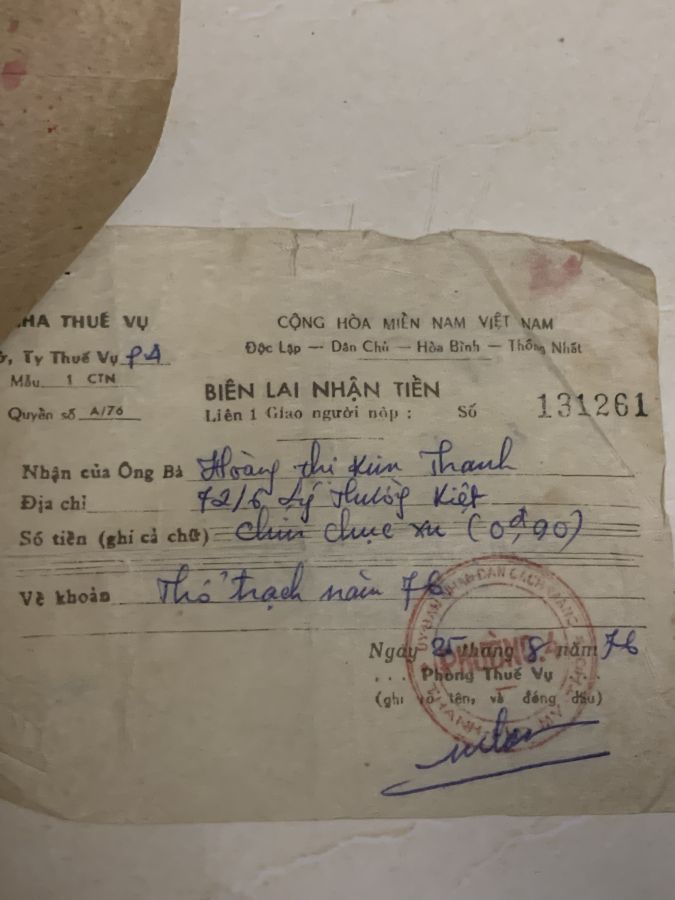 NHA THUẾ VỤ
Ty Thuế Vụ P4
Mẫu 1 CTN
Quyển số A/76
CỘNG HÒA MIỀN NAM VIỆT NAM
Độc Lập — Dân Chủ — Hòa Bình — Thống Nhất
BIÊN LAI NHẬN TIỀN
Liên 1 Giao người nộp : Số 131261
Nhận của Ông Bà Hoàng thị Kim Thanh
Địa chỉ 72/6 Lý Thường Kiệt
Số tiền (ghi cả chữ) chín chục xu (0đ,90)
Về khoản Thổ trạch năm 76
Ngày 25 tháng 8 năm 76
Phòng Thuế Vụ
(ghi rõ tên, và đóng dấu)
ỦY BAN NHÂN DÂN CÁCH MẠNG
PHƯỜNG 4
THÀNH MỸ THO